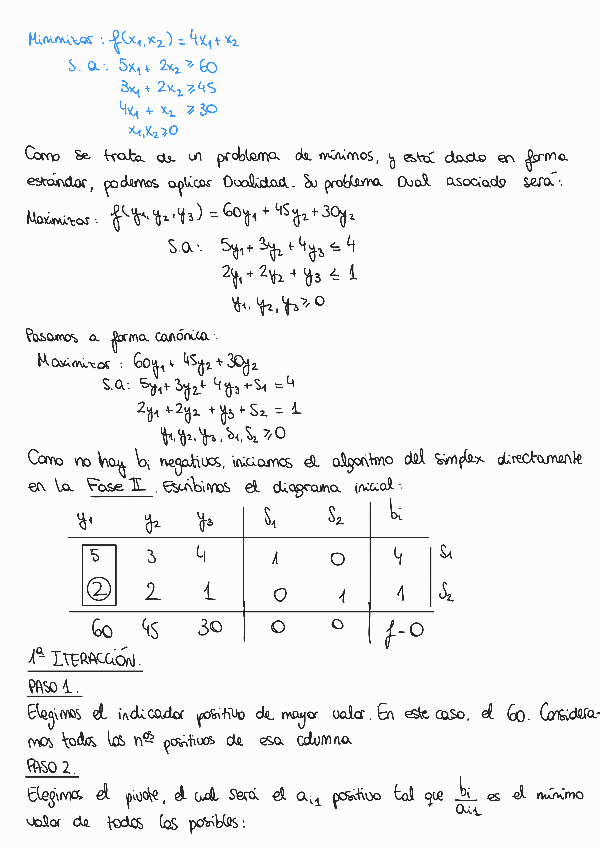 Minimizar : f(x₁,x₂) = 4x₁ + x₂
S. a : 5x₁ + 2x₂ ≥ 60
3x₁ + 2x₂ ≥ 45
4x₁ + x₂ ≥ 30
x₁,x₂ ≥ 0
Como se trata de un problema de mínimos, y está dado en forma
estándar, podemos aplicar Dualidad. Su problema Dual asociado será:
Maximizar : f(y₁, y₂, y₃) = 60y₁ + 45y₂ + 30y₂
S.a : 5y₁ + 3y₂ + 4y₃ ≤ 4
2y₁ + 2y₂ + y₃ ≤ 1
y₁, y₂, y₃ ≥ 0
Pasamos a forma canónica :
Maximizar : 60y₁ + 45y₂ + 30y₂
S.a : 5y₁ + 3y₂ + 4y₃ + S₁ = 4
2y₁ + 2y₂ + y₃ + S₂ = 1
y₁, y₂, y₃, S₁, S₂ ≥ 0
Como no hay bi negativos, iniciamos el algoritmo del simplex directamente
en la Fase II. Escribimos el diagrama inicial :
y₁ y₂ y₃ S₁ S₂ bi
5 3 4 1 0 4 S₁
2 2 1 0 1 1 S₂
60 45 30 0 0 f-0
1ª ITERACCIÓN.
PASO 1.
Elegimos el indicador positivo de mayor valor. En este caso, el 60. Considera-
mos todos los nºs positivos de esa columna
PASO 2.
Elegimos el pivote, el cual será el aᵢ₁ positivo tal que bi/aᵢ₁ es el mínimo
valor de todos los posibles :